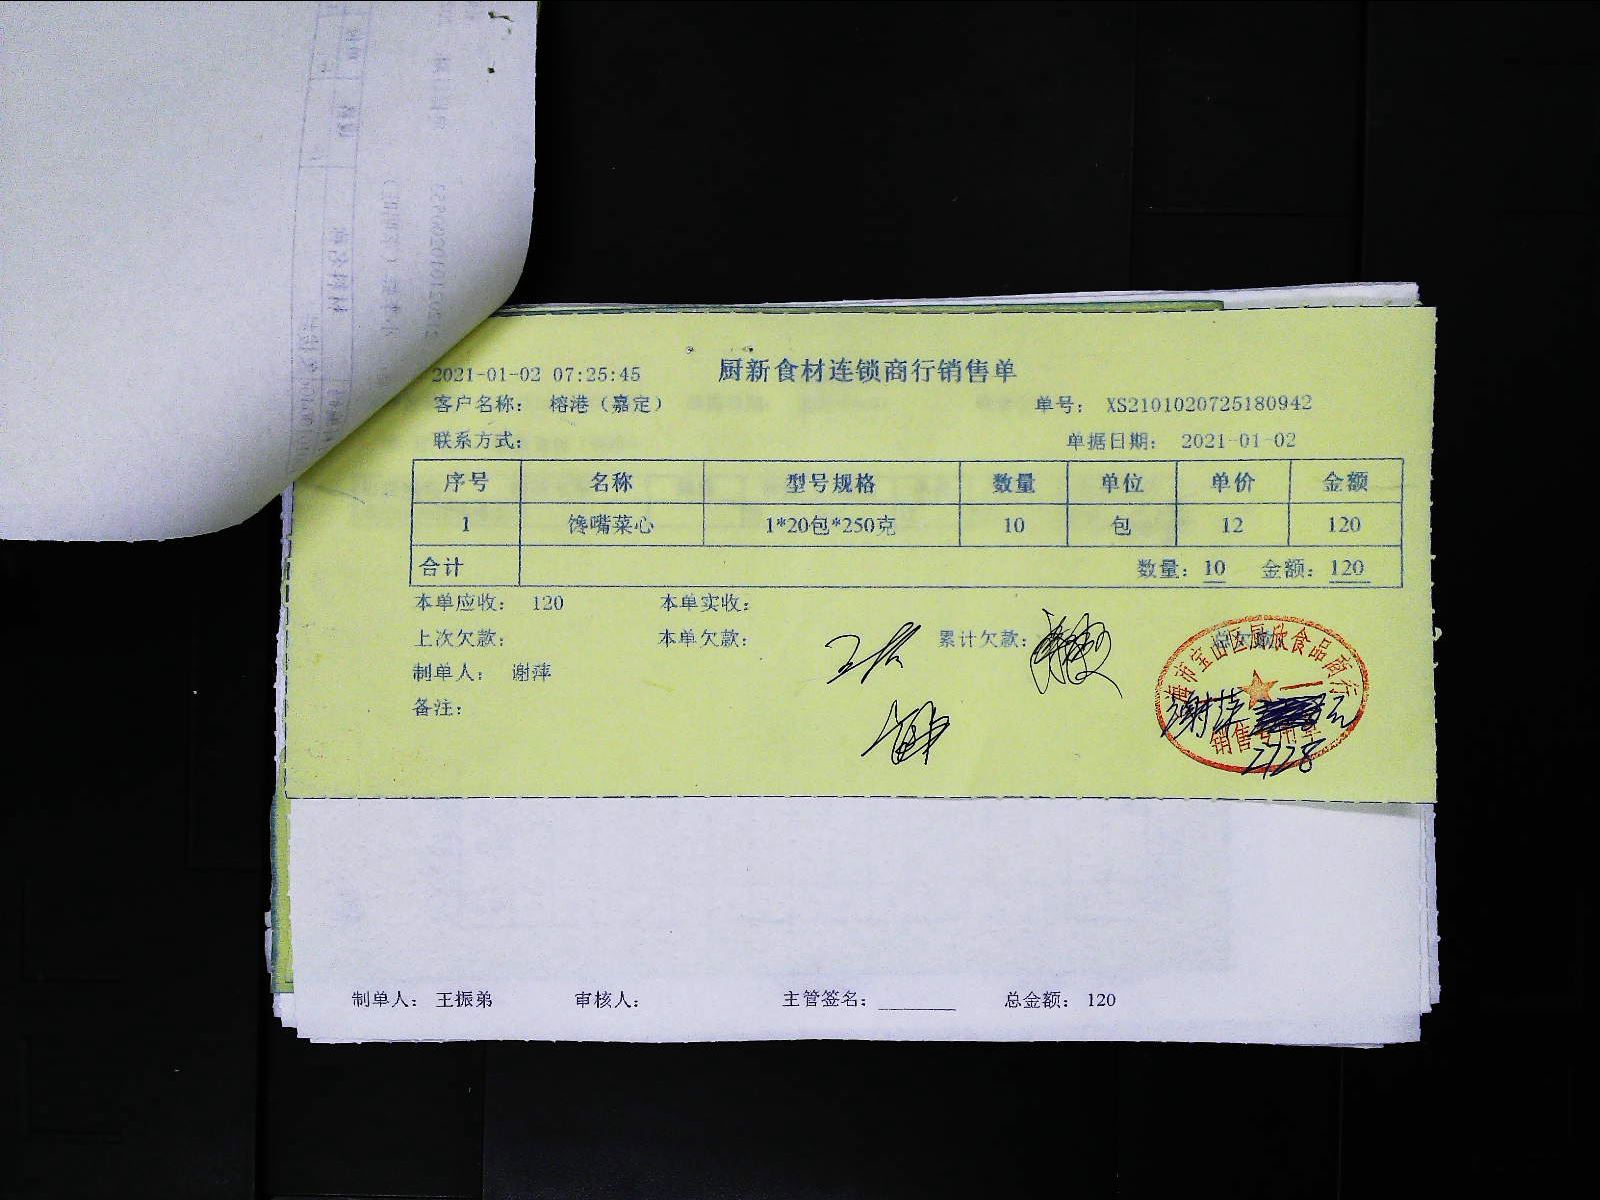 2021-01-02 07:25:45 厨新食材连锁商行销售单
客户名称： 榕港（嘉定） 单号： XS2101020725180942
联系方式： 单据日期： 2021-01-02
序号 名称 型号规格 数量 单位 单价 金额
1 馋嘴菜心 1*20包*250克 10 包 12 120
合计 数量：10 金额：120
本单应收： 120 本单实收：
上次欠款： 本单欠款： 累计欠款：
制单人： 谢萍
备注：
市宝山区厨欣食品商行
销售专用章
2728
制单人： 王振弟 审核人： 主管签名： 总金额： 120